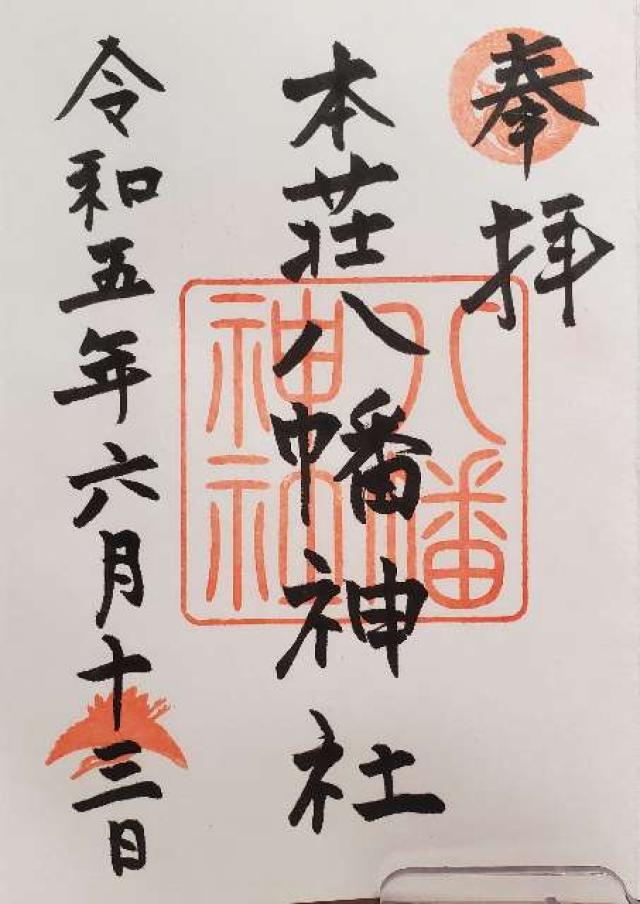 奉拝
本荘八幡神社
八幡
神社
令和五年六月十三日